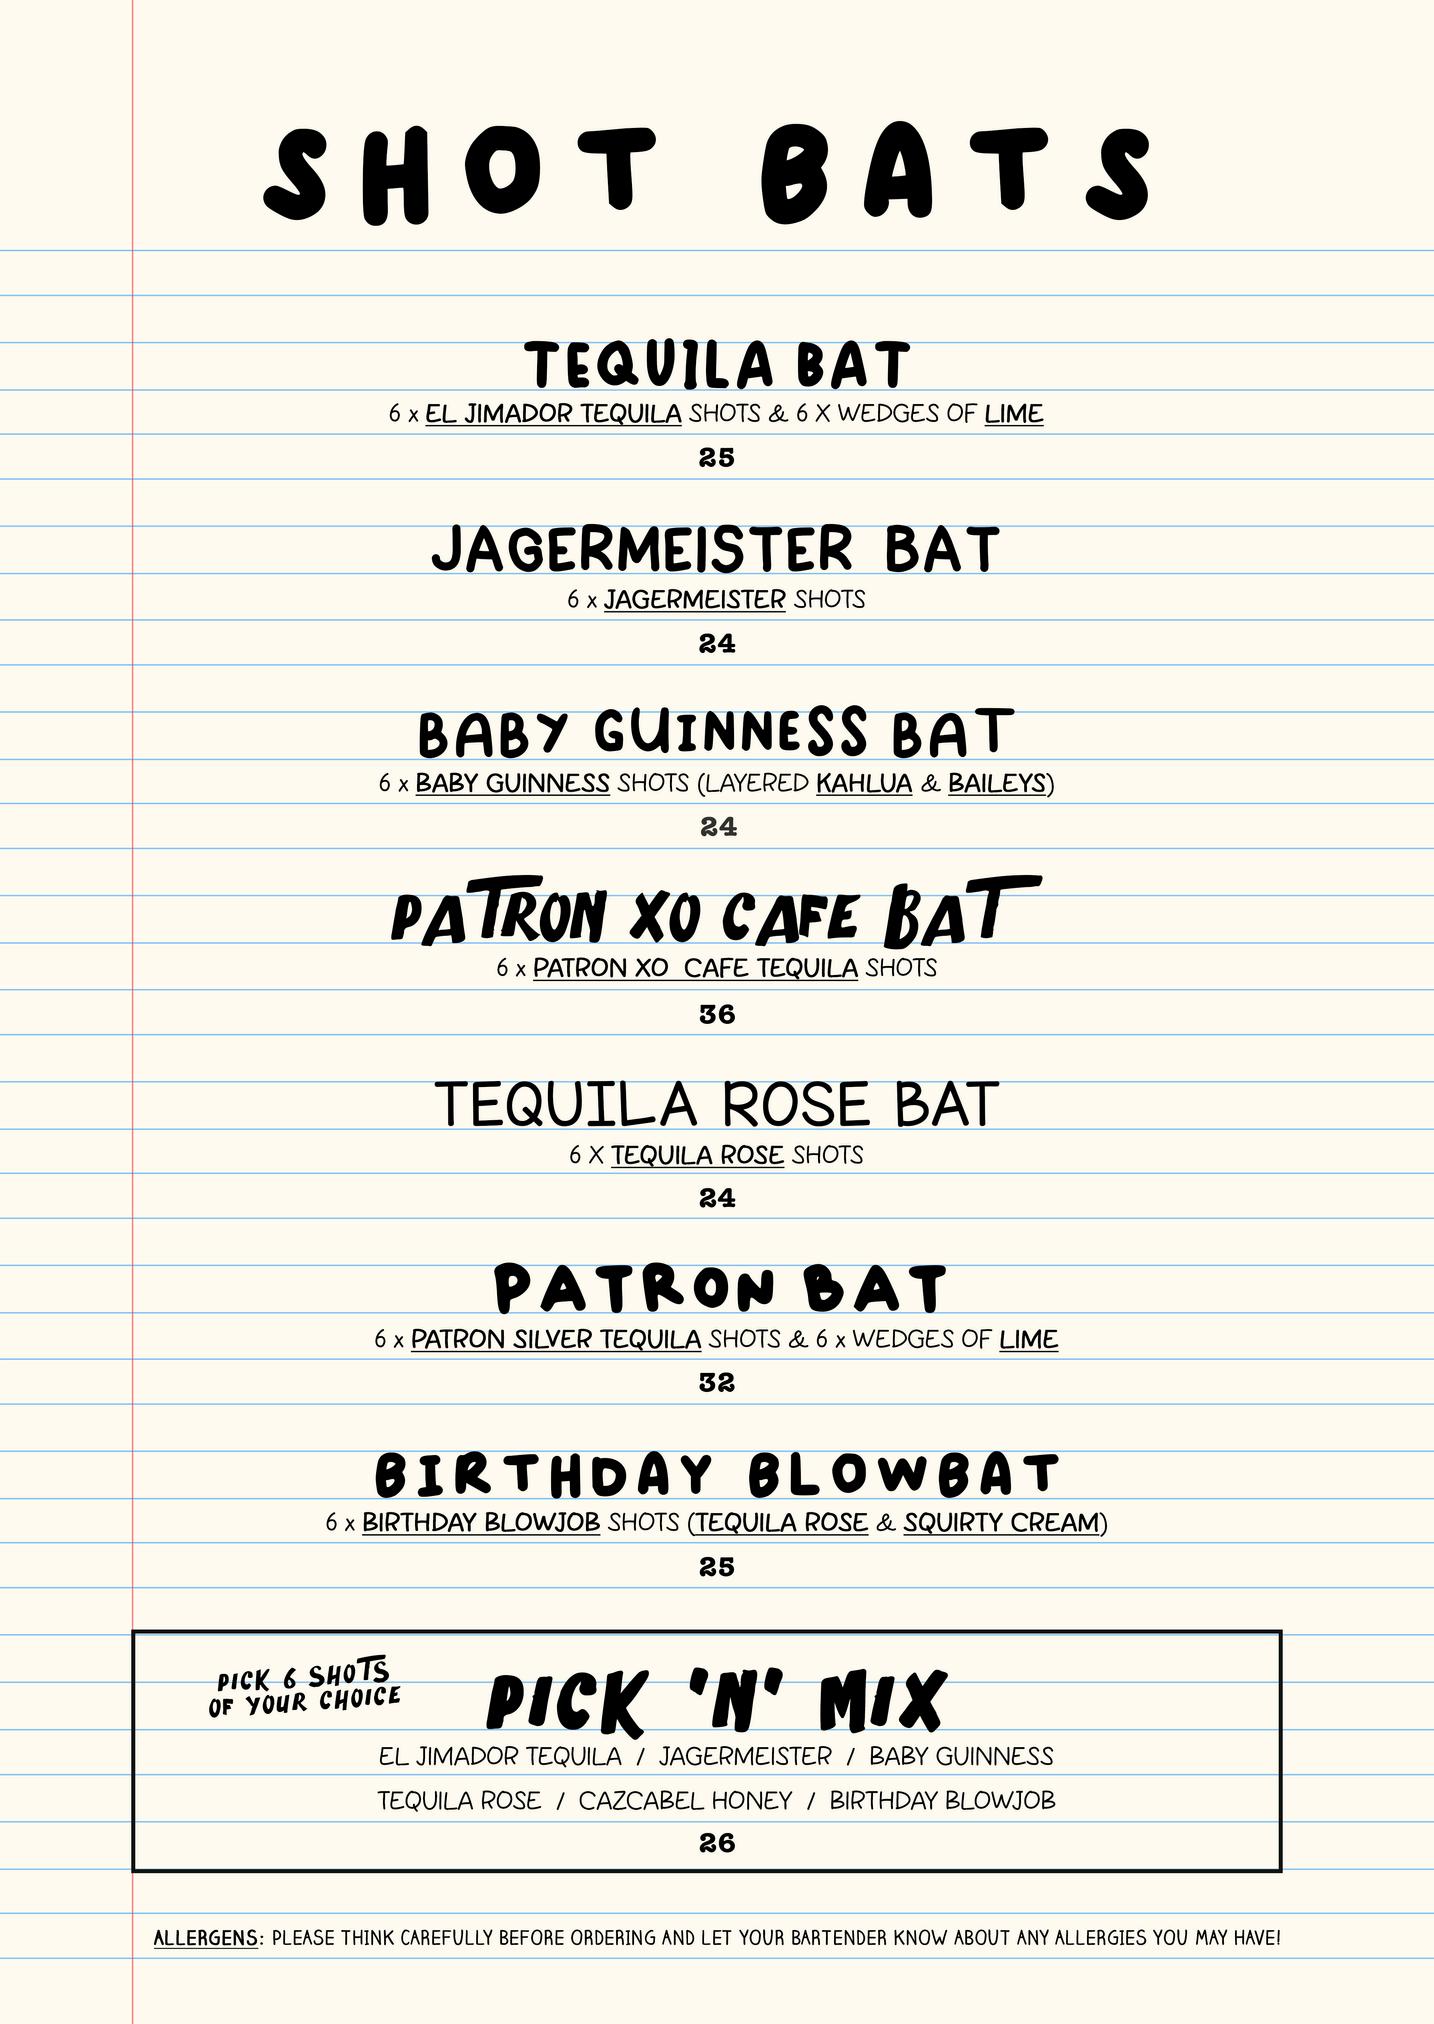 SHOT BATS
TEQUILA BAT
6 x EL JIMADOR TEQUILA SHOTS & 6 X WEDGES OF LIME
25
JAGERMEISTER BAT
6 x JAGERMEISTER SHOTS
24
BABY GUINNESS BAT
6 x BABY GUINNESS SHOTS (LAYERED KAHLUA & BAILEYS)
24
PATRON XO CAFE BAT
6 x PATRON XO CAFE TEQUILA SHOTS
36
TEQUILA ROSE BAT
6 X TEQUILA ROSE SHOTS
24
PATRON BAT
6 x PATRON SILVER TEQUILA SHOTS & 6 x WEDGES OF LIME
32
BIRTHDAY BLOWBAT
6 x BIRTHDAY BLOWJOB SHOTS (TEQUILA ROSE & SQUIRTY CREAM)
25
PICK 6 SHOTS
OF YOUR CHOICE
PICK 'N' MIX
EL JIMADOR TEQUILA / JAGERMEISTER / BABY GUINNESS
TEQUILA ROSE / CAZCABEL HONEY / BIRTHDAY BLOWJOB
26
ALLERGENS: PLEASE THINK CAREFULLY BEFORE ORDERING AND LET YOUR BARTENDER KNOW ABOUT ANY ALLERGIES YOU MAY HAVE!